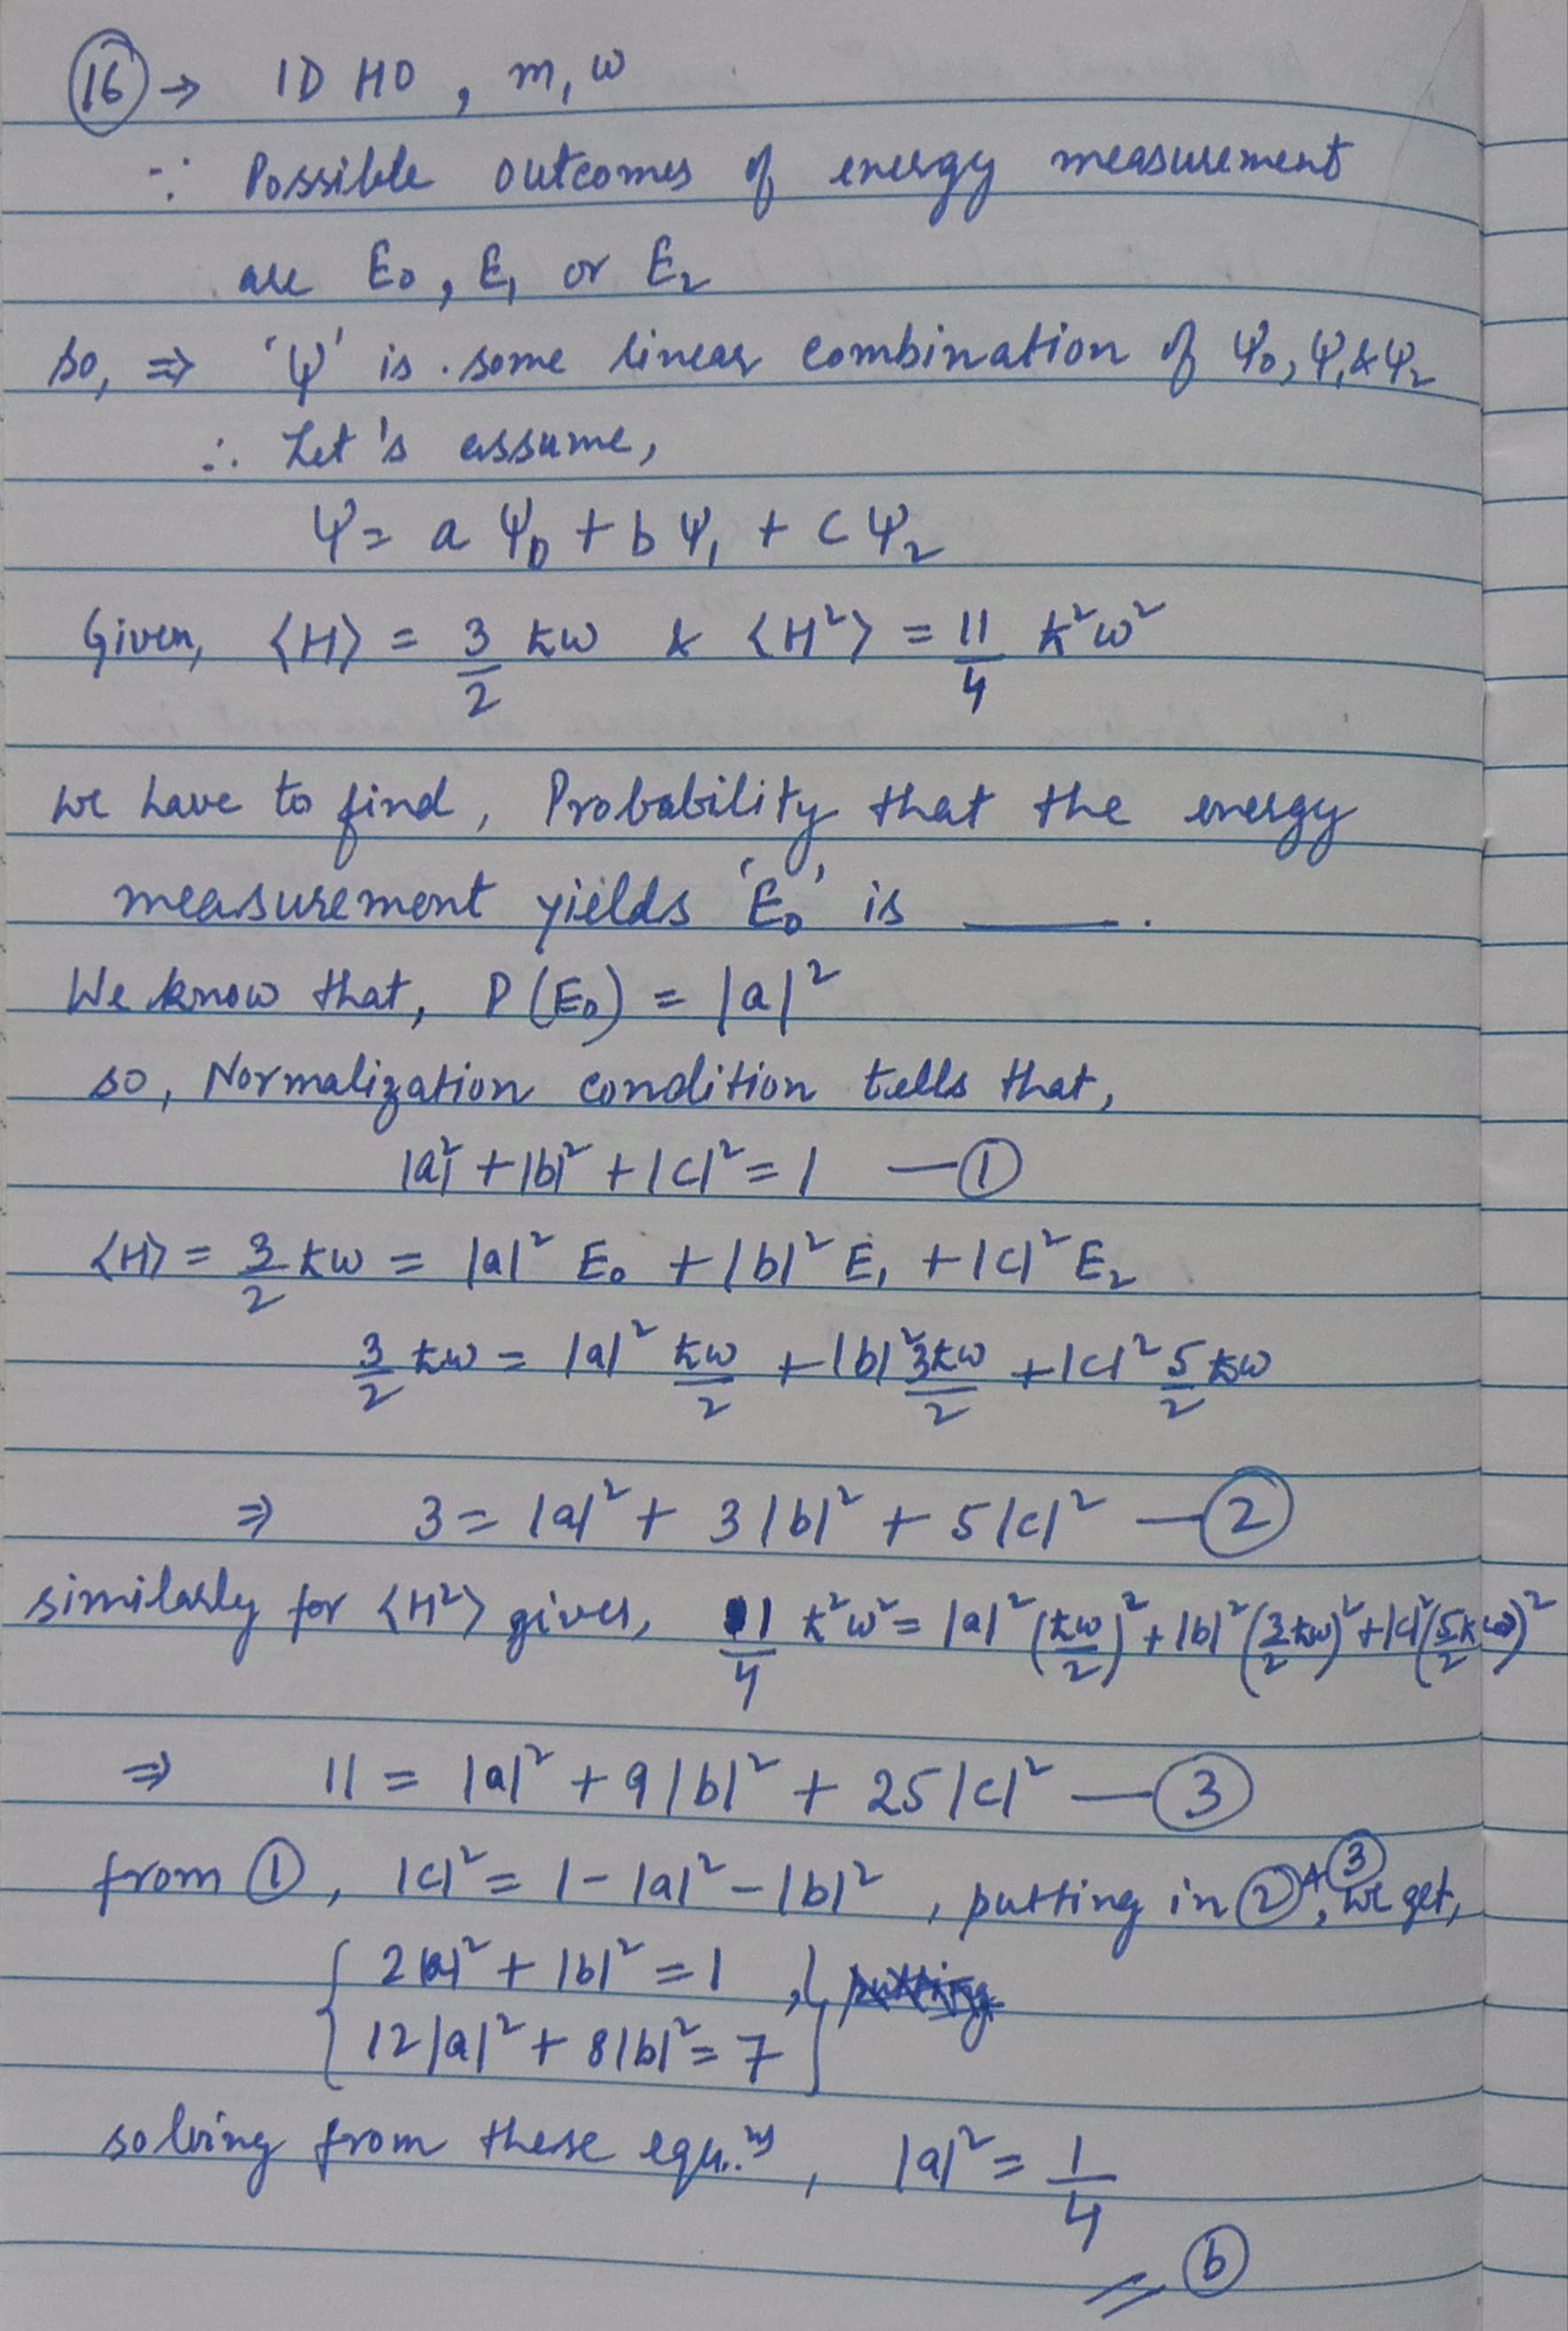 (16) → 1D HO , m, ω
∵ Possible outcomes of energy measurement
are E₀, E₁ or E₂
so, ⇒ 'ψ' is some linear combination of ψ₀, ψ₁ & ψ₂
∴ Let's assume,
ψ = a ψ₀ + b ψ₁ + c ψ₂
Given, ⟨H⟩ = 3/2 ℏω & ⟨H²⟩ = 11/4 ℏ²ω²
we have to find, Probability that the energy
measurement yields 'E₀' is ____.
We know that, P(E₀) = |a|²
so, Normalization condition tells that,
|a|² + |b|² + |c|² = 1 —(1)
⟨H⟩ = 3/2 ℏω = |a|² E₀ + |b|² E₁ + |c|² E₂
3/2 ℏω = |a|² ℏω/2 + |b|² 3ℏω/2 + |c|² 5/2 ℏω
⇒ 3 = |a|² + 3|b|² + 5|c|² —(2)
similarly for ⟨H²⟩ gives, 11/4 ℏ²ω² = |a|² (ℏω/2)² + |b|² (3/2 ℏω)² + |c|² (5/2 ℏω)²
⇒ 11 = |a|² + 9|b|² + 25|c|² —(3)
from (1), |c|² = 1 - |a|² - |b|² , putting in (2) & (3), we get,
{ 2|a|² + |b|² = 1 ,
12|a|² + 8|b|² = 7 }
solving from these equ.ⁿˢ, |a|² = 1/4
(b)